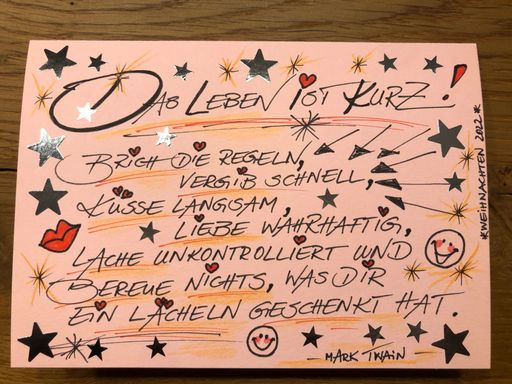 DAS LEBEN IST KURZ!
BRICH DIE REGELN,
VERGIB SCHNELL,
KÜSSE LANGSAM,
LIEBE WAHRHAFTIG,
LACHE UNKONTROLLIERT UND
BEREUE NICHTS, WAS DIR
EIN LÄCHELN GESCHENKT HAT.
– MARK TWAIN –
*WEIHNACHTEN 2022*